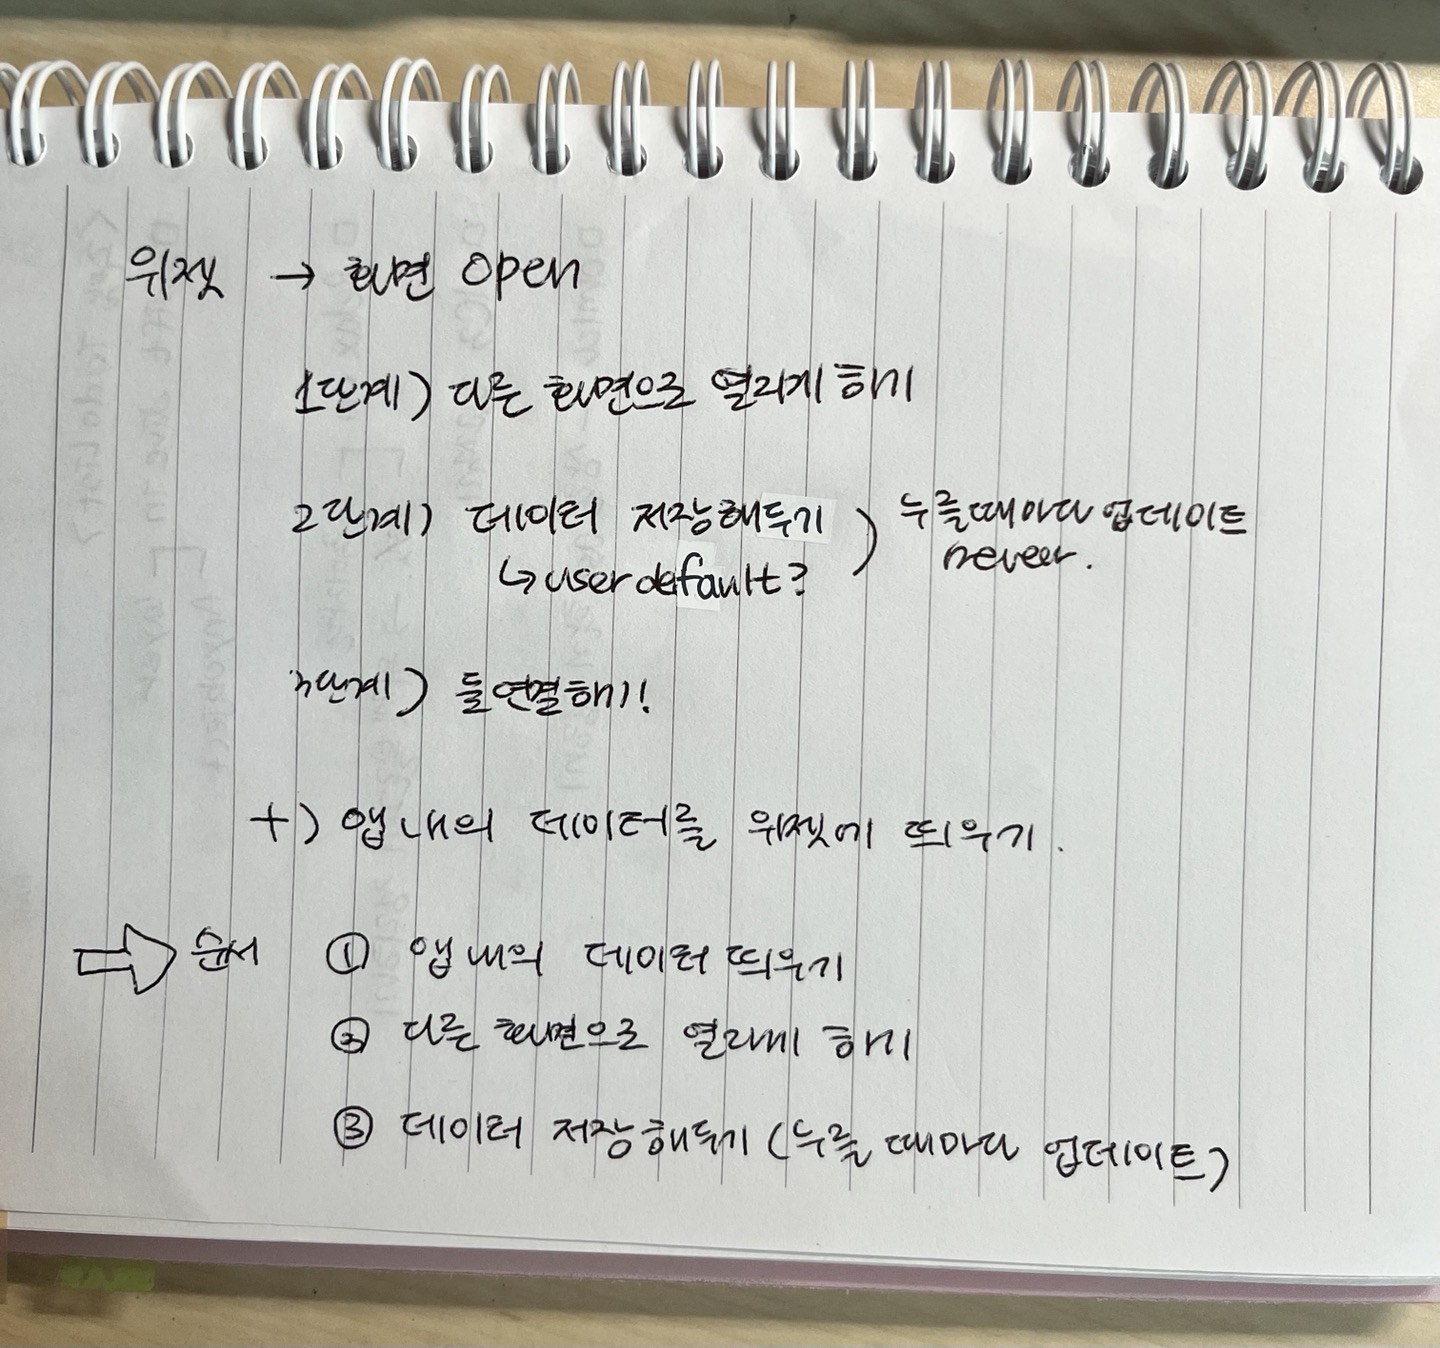 위젯 → 화면 open
1단계) 다른 화면으로 열리게 하기
2단계) 데이터 저장해두기 ) 누를때마다 업데이트
↳ user default? never.
3단계) 둘 연결하기!
+) 앱 내의 데이터를 위젯에 띄우기.
⇒ 순서 ① 앱 내의 데이터 띄우기
② 다른 화면으로 열리게 하기
③ 데이터 저장해두기 (누를 때마다 업데이트)